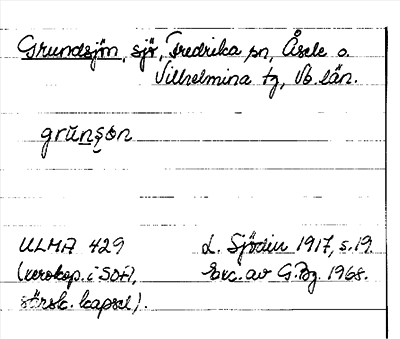 Grundsjön, sjö, Fredrika sn, Åsele o.
Vilhelmina tg, Vb. län.
grŭnşơn
ULMA 429
(xerokop. i SOFI,
särsk. kapsel).
L. Sjödin 1917, s. 19.
Exc. av G. Bg. 1968.